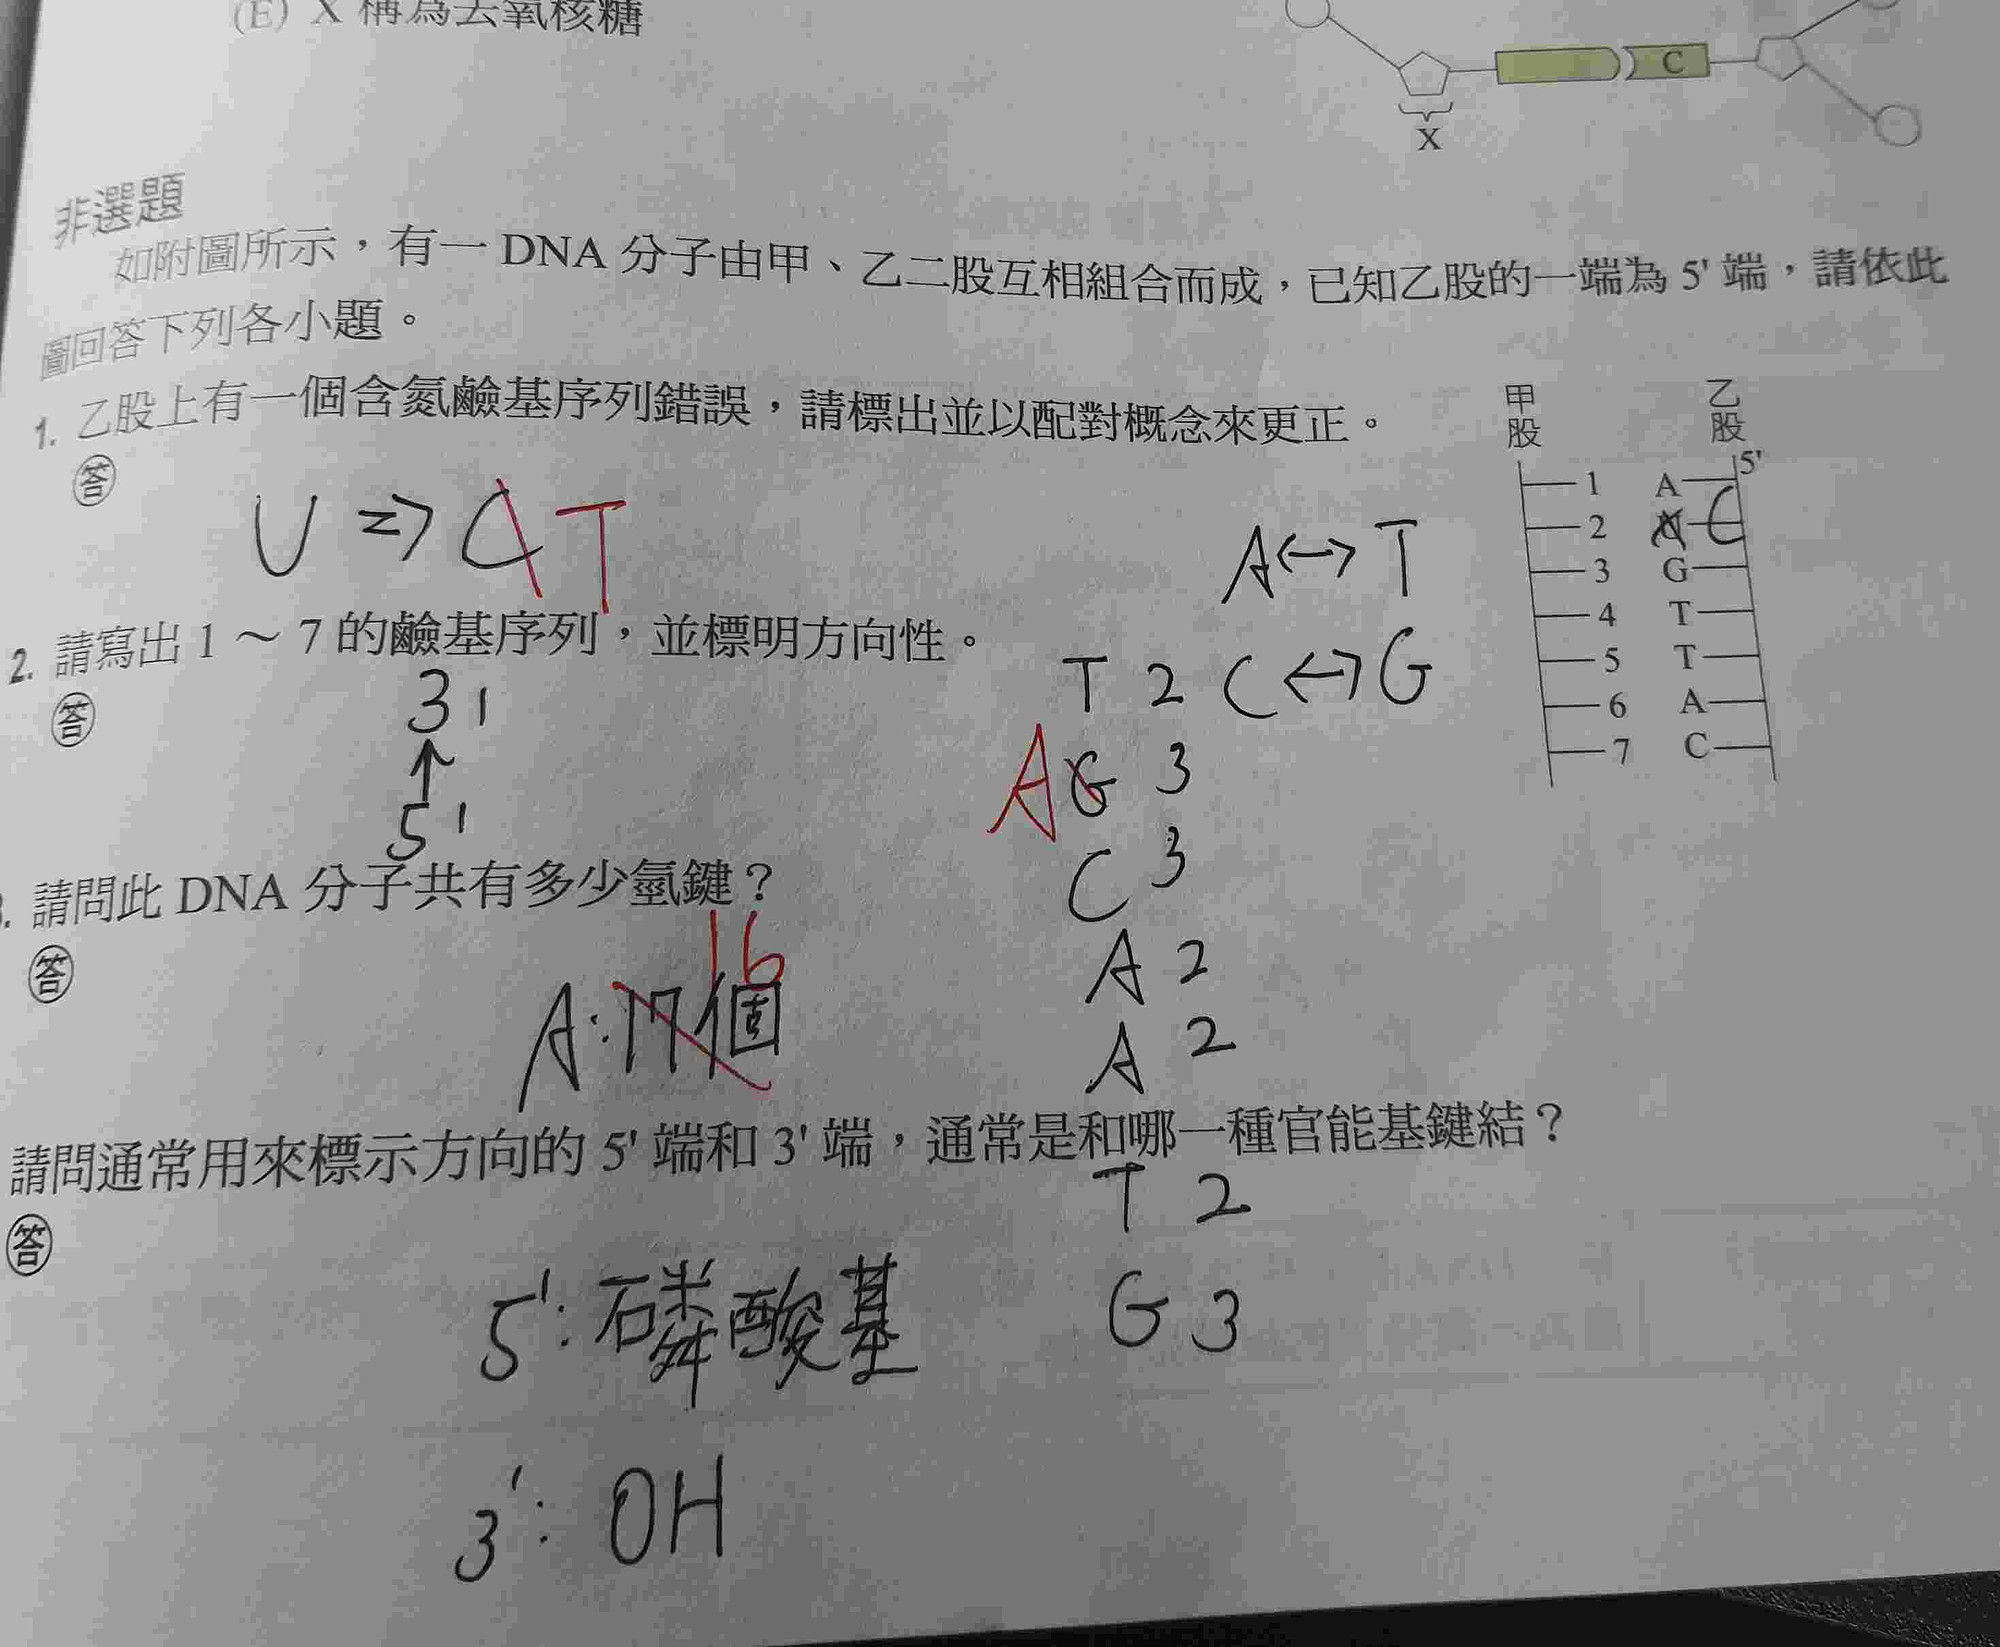 (E) X 稱為去氧核糖
C
X
非選題
如附圖所示，有一 DNA 分子由甲、乙二股互相組合而成，已知乙股的一端為 5' 端，請依此
圖回答下列各小題。
1. 乙股上有一個含氮鹼基序列錯誤，請標出並以配對概念來更正。
答
U => C T
2. 請寫出 1 ～ 7 的鹼基序列，並標明方向性。
答
3'
↑
5'
A <-> T
C <-> G
T 2
A G 3
C 3
A 2
A 2
T 2
G 3
甲股
乙股
5'
1 A
2 C
3 G
4 T
5 T
6 A
7 C
. 請問此 DNA 分子共有多少氫鍵？
答
A: 17個 16
請問通常用來標示方向的 5' 端和 3' 端，通常是和哪一種官能基鍵結？
答
5': 磷酸基
3': OH